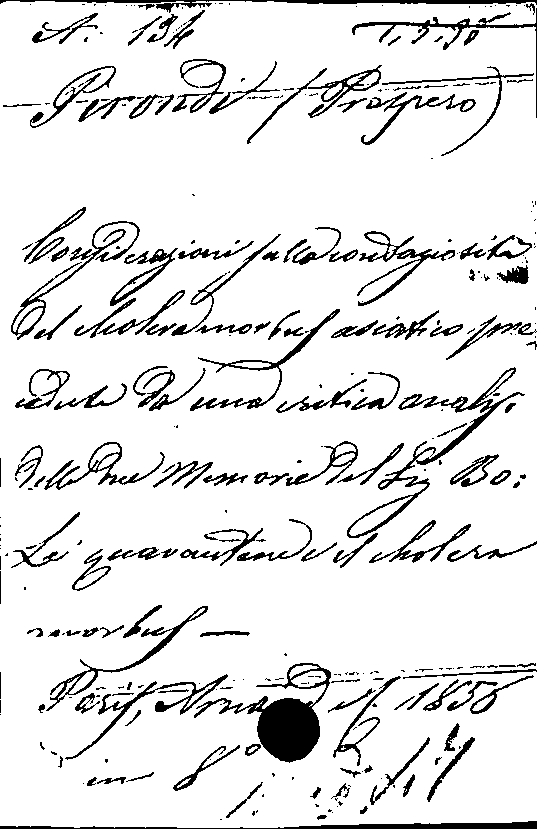 A. 134 1, 5, 30
Pirondi (Prospero)
Considerazioni sulla contagiosità
del cholera morbus asiatico pre=
cedute da una critica analisi
delle due Memorie del Sig Bo:
Le quarantene e il cholera
morbus —
Paris, 1856
in 8°